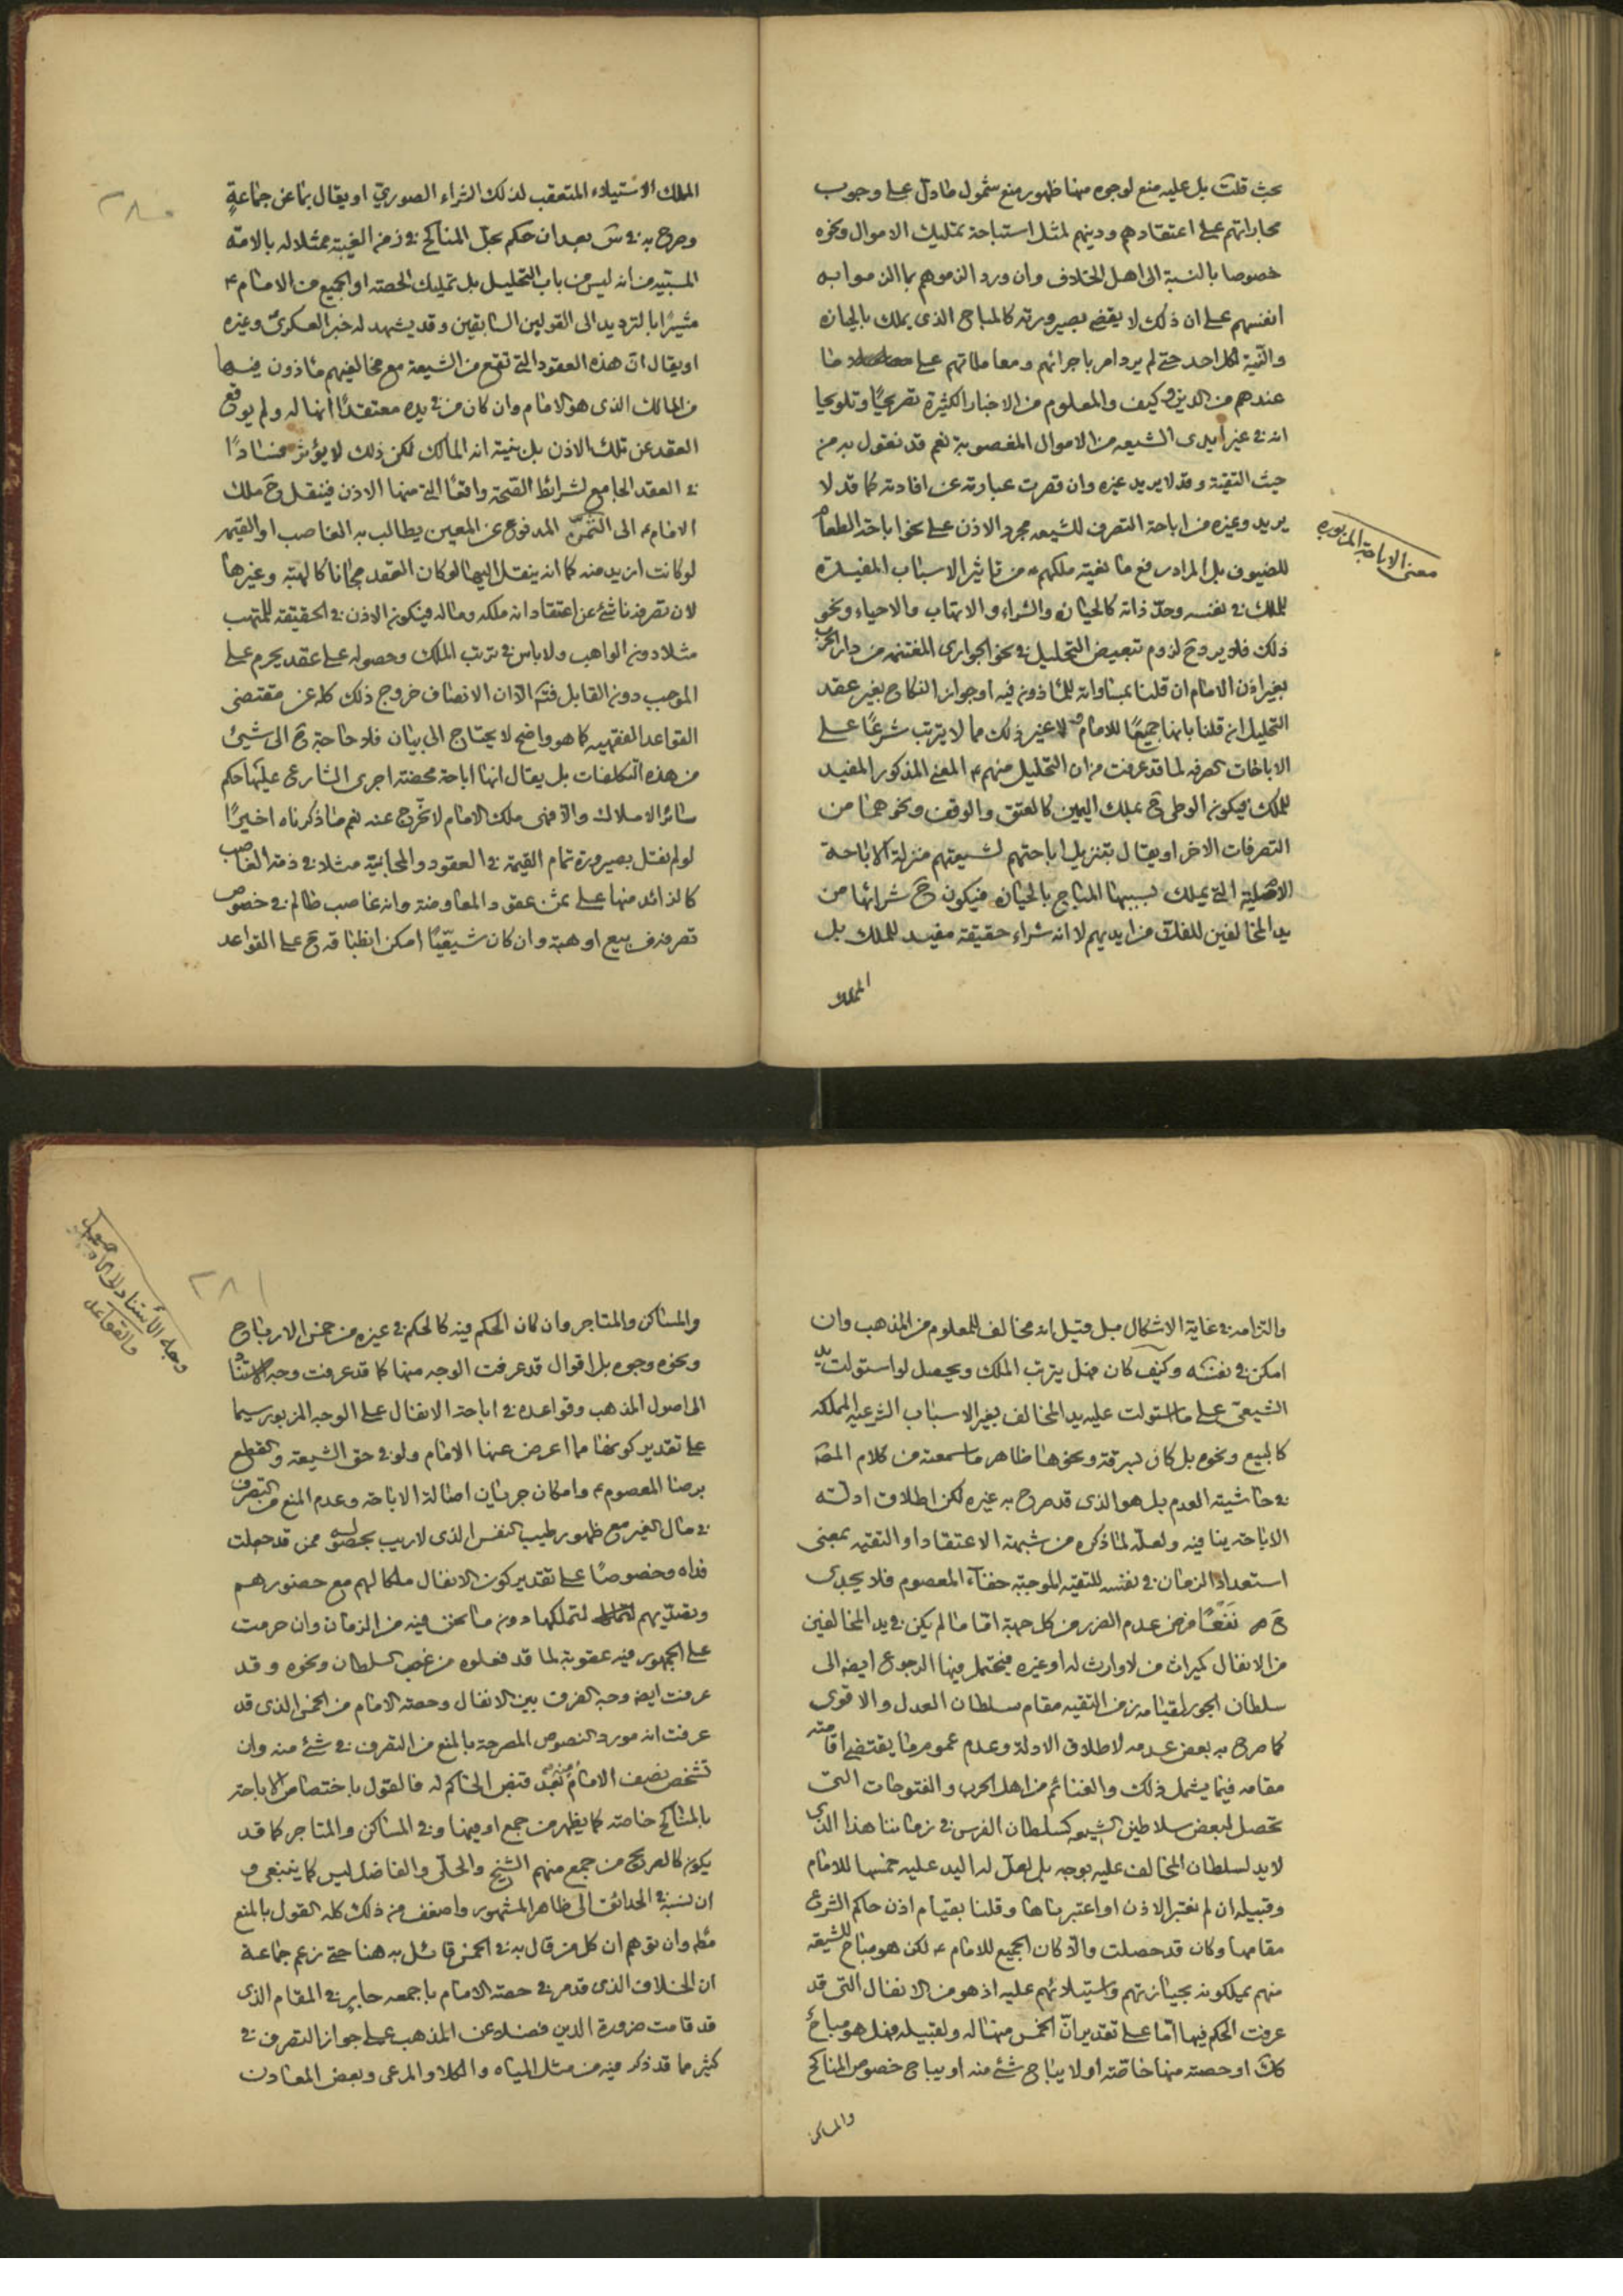 بحث قلت بل عليه منع لوجوه منها ظهور منع شمول ما دل على وجوب
مجاراتهم على اعتقادهم ودينهم لمثل استباحة تمليك الاموال ونحوه
خصوصا بالنسبة الى اهل الخلاف وان ورد الزموهم بما الزموا به
انفسهم على ان ذلك لا يقضى بصيرورته كالمباح الذى يملك بالحيازه
والنية لكل احد حتى لم يرد امر باجرائهم ومعاملاتهم على ما
عندهم من الدين وكيف والمعلوم من الاخبار الكثيرة تصريحًا وتلويحا
انه فى غير ايدى الشيعه من الاموال المغصوبة نعم قد نقول به من
حيث التقية وقد لا يريد غيره وان قصرت عبارته عن افادته كما قد لا
يريد وغيره من اباحة التصرف للشيعه مجرد الاذن على نحو اباحة الطعام
معنى الاباحة المزبوره
للضيوف بل المراد رفع مانعية ملكهم من تاثير الاسباب المفيدة
للملك فى نفسه وحدّ ذاته كالحيازه والشراء والاتهاب والاحياء ونحو
ذلك فلا يرد ح لزوم تبعيض التحليل فى نحو الجوارى المغتنمه من دار الحرب
بغير اذن الامام ان قلنا بمساواته للماذون فيه او جواز النكاح بغير عقد
التحليل ان قلنا بانها جميعًا للامام لا غير ذلك مما لا يترتب شرعًا على
الاباحات الصرفه لما قد عرفت من ان التحليل منهم ع المعنى المذكور المفيد
للملك فيكون الوطى ح بملك اليمين كالعتق والوقف ونحوهما من
التصرفات الاخر او يقال بتنزيل اباحتهم لشيعتهم منزلة الاباحة
الاصلية التى يملك بسببها المباح بالحيازه فيكون ح شرائها من
يد المخالفين للفكّ من ايديهم لا انه شراء حقيقة مفيد للملك بل
الملك
الملك الاستيلاء المتعقب لذلك الشراء الصورىّ او يقال بما عن جماعةٍ
وصرح به فى س بعد ان حكم بحلّ المناكح فى زمن الغيبة ممثلا له بالامة
المسبيه من انه ليس من باب التحليل بل تمليك الحصة او الجميع من الامام ع
مشيرًا بالترديد الى القولين السابقين وقد يشهد له خبر العسكرىّ وغيره
او يقال انّ هذه العقود التى تقع من الشيعة مع مخالفيهم ماذون فيها
من المالك الذى هو الامام وان كان من فى يده معتقدًا انها له ولم يوقع
العقد عن تلك الاذن بل بنية انه المالك لكن ذلك لا يؤثر فسادًا
فى العقد الجامع لشرائط الصحة واقعًا التى منها الاذن فينتقل ح ملك
الامام ع الى الثمن المدفوع عن المعين يطالب به الغاصب او القيمه
لو كانت ازيد منه كما انه ينتقل اليها لو كان العقد مجانا كالهبة وغيرها
لان تصرفه ناشئ عن اعتقاد انه ملكه وماله فيكون الاذن فى الحقيقة للمتهب
مثلا دون الواهب ولا باس فى ترتب الملك وحصوله على عقد يحرم على
الموجب دون القابل فتم الا ان الانصاف خروج ذلك كله عن مقتضى
القواعد الفقهيه كما هو واضح لا يحتاج الى بيان فلا حاجة ح الى شيئ
من هذه التكلفات بل يقال انها اباحة محضة اجرى الشارع عليها حكم
سائر الاملاك والا فهى ملك الامام لا تخرج عنه نعم ما ذكرناه اخيرًا
لو لم نقل بصيرورة تمام القيمة فى العقود والمجانية مثلا فى ذمة الغاصب
كالزائد منها على ثمن عقود المعاوضة وانه غاصب ظالم فى خصوص
تصرفه ف بيع او هبة وان كان شيعيًا امكن انطباقه ح على القواعد
والتزامه فى غاية الاشكال بل قيل انه مخالف للمعلوم من المذهب وان
امكن فى نفسه وكيف كان فهل يترتب الملك ويحصل لو استولت يد
الشيعى على ما استولت عليه يد المخالف بغير الاسباب الشرعيه المملكه
كالبيع ونحوه بل كان بسرقة ونحوها ظاهر ما سمعته من كلام المصـ
فى حاشيته العدم بل هو الذى قد صرح به غيره لكن اطلاق ادلته
الاباحة ينافيه ولعله لما ذكره من شبهة الاعتقاد او التقيه بمعنى
استعداد الزمان فى نفسه للتقيه الموجبة خفاء المعصوم فلا يجدى
ح نَفْعًا فرض عدم الضرر من كل جهة اما ما لم يكن فى يد المخالفين
من الانفال كميراث من لا وارث له او غيره فيحتمل فيها الرجوع ايضا الى
سلطان الجور لقيامه زمن التقيه مقام سلطان العدل والاقوى
كما صرح به بعض عدمه لاطلاق الادلة وعدم عموم ما يقتضى اقامته
مقامه فيما يشمل ذلك والغنائم من اهل الحرب والفتوحات التى
تحصل لبعض سلاطين الشيعه كسلطان الفرس فى زماننا هذا الذى
لا يد لسلطان المخالف عليه بوجه بل لعل له اليد عليه خمسها للامام
وقبيله ان لم نعتبر الاذن او اعتبرناها وقلنا بقيام اذن حاكم الشرع
مقامها وكان قد حصلت والا كان الجميع للامام ع لكن هو مباح للشيعه
منهم يملكونه بحيازتهم واستيلائهم عليه اذ هو من الانفال التى قد
عرفت الحكم فيها امّا على تقدير انّ الخمس منها له ولقبيله فهل هو مباح
كك او حصته منها خاصّة او لا يباح شئ منه او يباح خصوص المناكح
والمساكن
وجه الأستناد لاصول
والقواعد
والمساكن والمتاجر وان كان الحكم فيه كالحكم فى غيره من خمس الارباح
ونحوه وجوه بل اقوال قد عرفت الوجه منها كما قد عرفت وجه الاستناد
الى اصول المذهب وقواعده فى اباحة الانفال على الوجه المزبور سيما
على تقدير كونها مما اعرض عنها الامام ولو فى حق الشيعة والقطع
برضا المعصوم ع وامكان جريان اصالة الاباحة وعدم المنع من التصرف
فى مال الغير مع ظهور طيب النفس الذى لا ريب بحصوله ممن قد جعلت
فداه وخصوصًا على تقدير كون الانفال ملكا لهم مع حضورهم
وتصدّيهم لتملكها دون ما نحن فيه من الزمان وان حرمت
على الجمهور فيه عقوبة لما قد فعلوه من غصب السلطان ونحوه وقد
عرفت ايضا وجه الفرق بين الانفال وحصة الامام من الخمس الذى قد
عرفت انه مورد النصوص المصرحة بالمنع من التصرف فى شئ منه وان
تشخص نصف الامام منه بعد قبض الحاكم له فالقول باختصاص الاباحة
بالمناكح خاصة كما يظهر من جمع او فيها وفى المساكن والمتاجر كما قد
يكون كالصريح من جمع منهم الشيخ والحلّى والفاضل ليس كما ينبغى و
ان نسبة فى الحدائق الى ظاهر المشهور واضعف من ذلك كله القول بالمنع
مطلقا وان توهم ان كل من قال به فى الخمس قائل به هنا حتى زعم جماعة
ان الخلاف الذى قد مر فى حصة الامام باجمعه جار فى المقام الذى
قد قامت ضرورة الدين فضلا عن المذهب على جواز التصرف فى
كثير مما قد ذكر فيه من مثل المياه والكلاء والمرعى وبعض المعادن
٢٨١